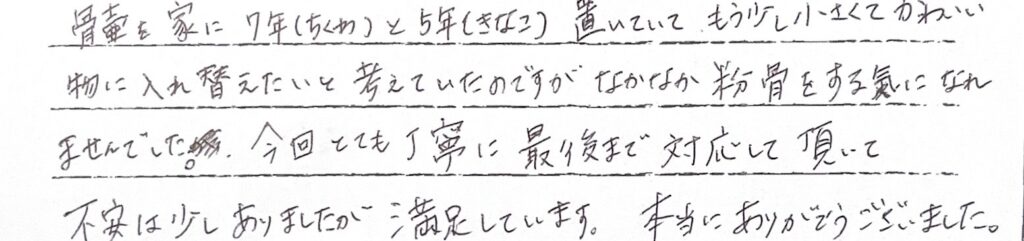 骨壷を家に 7年(ちくわ)と5年(きなこ) 置いていて もう少し小さくてかわいい
物に入れ替えたいと考えていたのですが なかなか粉骨をする氣になれ
ませんでした。今回とても丁寧に最後まで対応して頂いて
不安は少しありましたが満足しています。本当にありがとうございました。